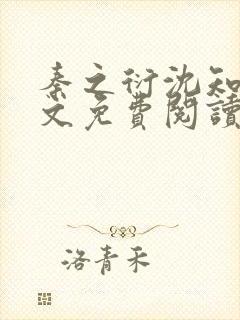 秦之衍沈知
文免費閱讀
洛青禾